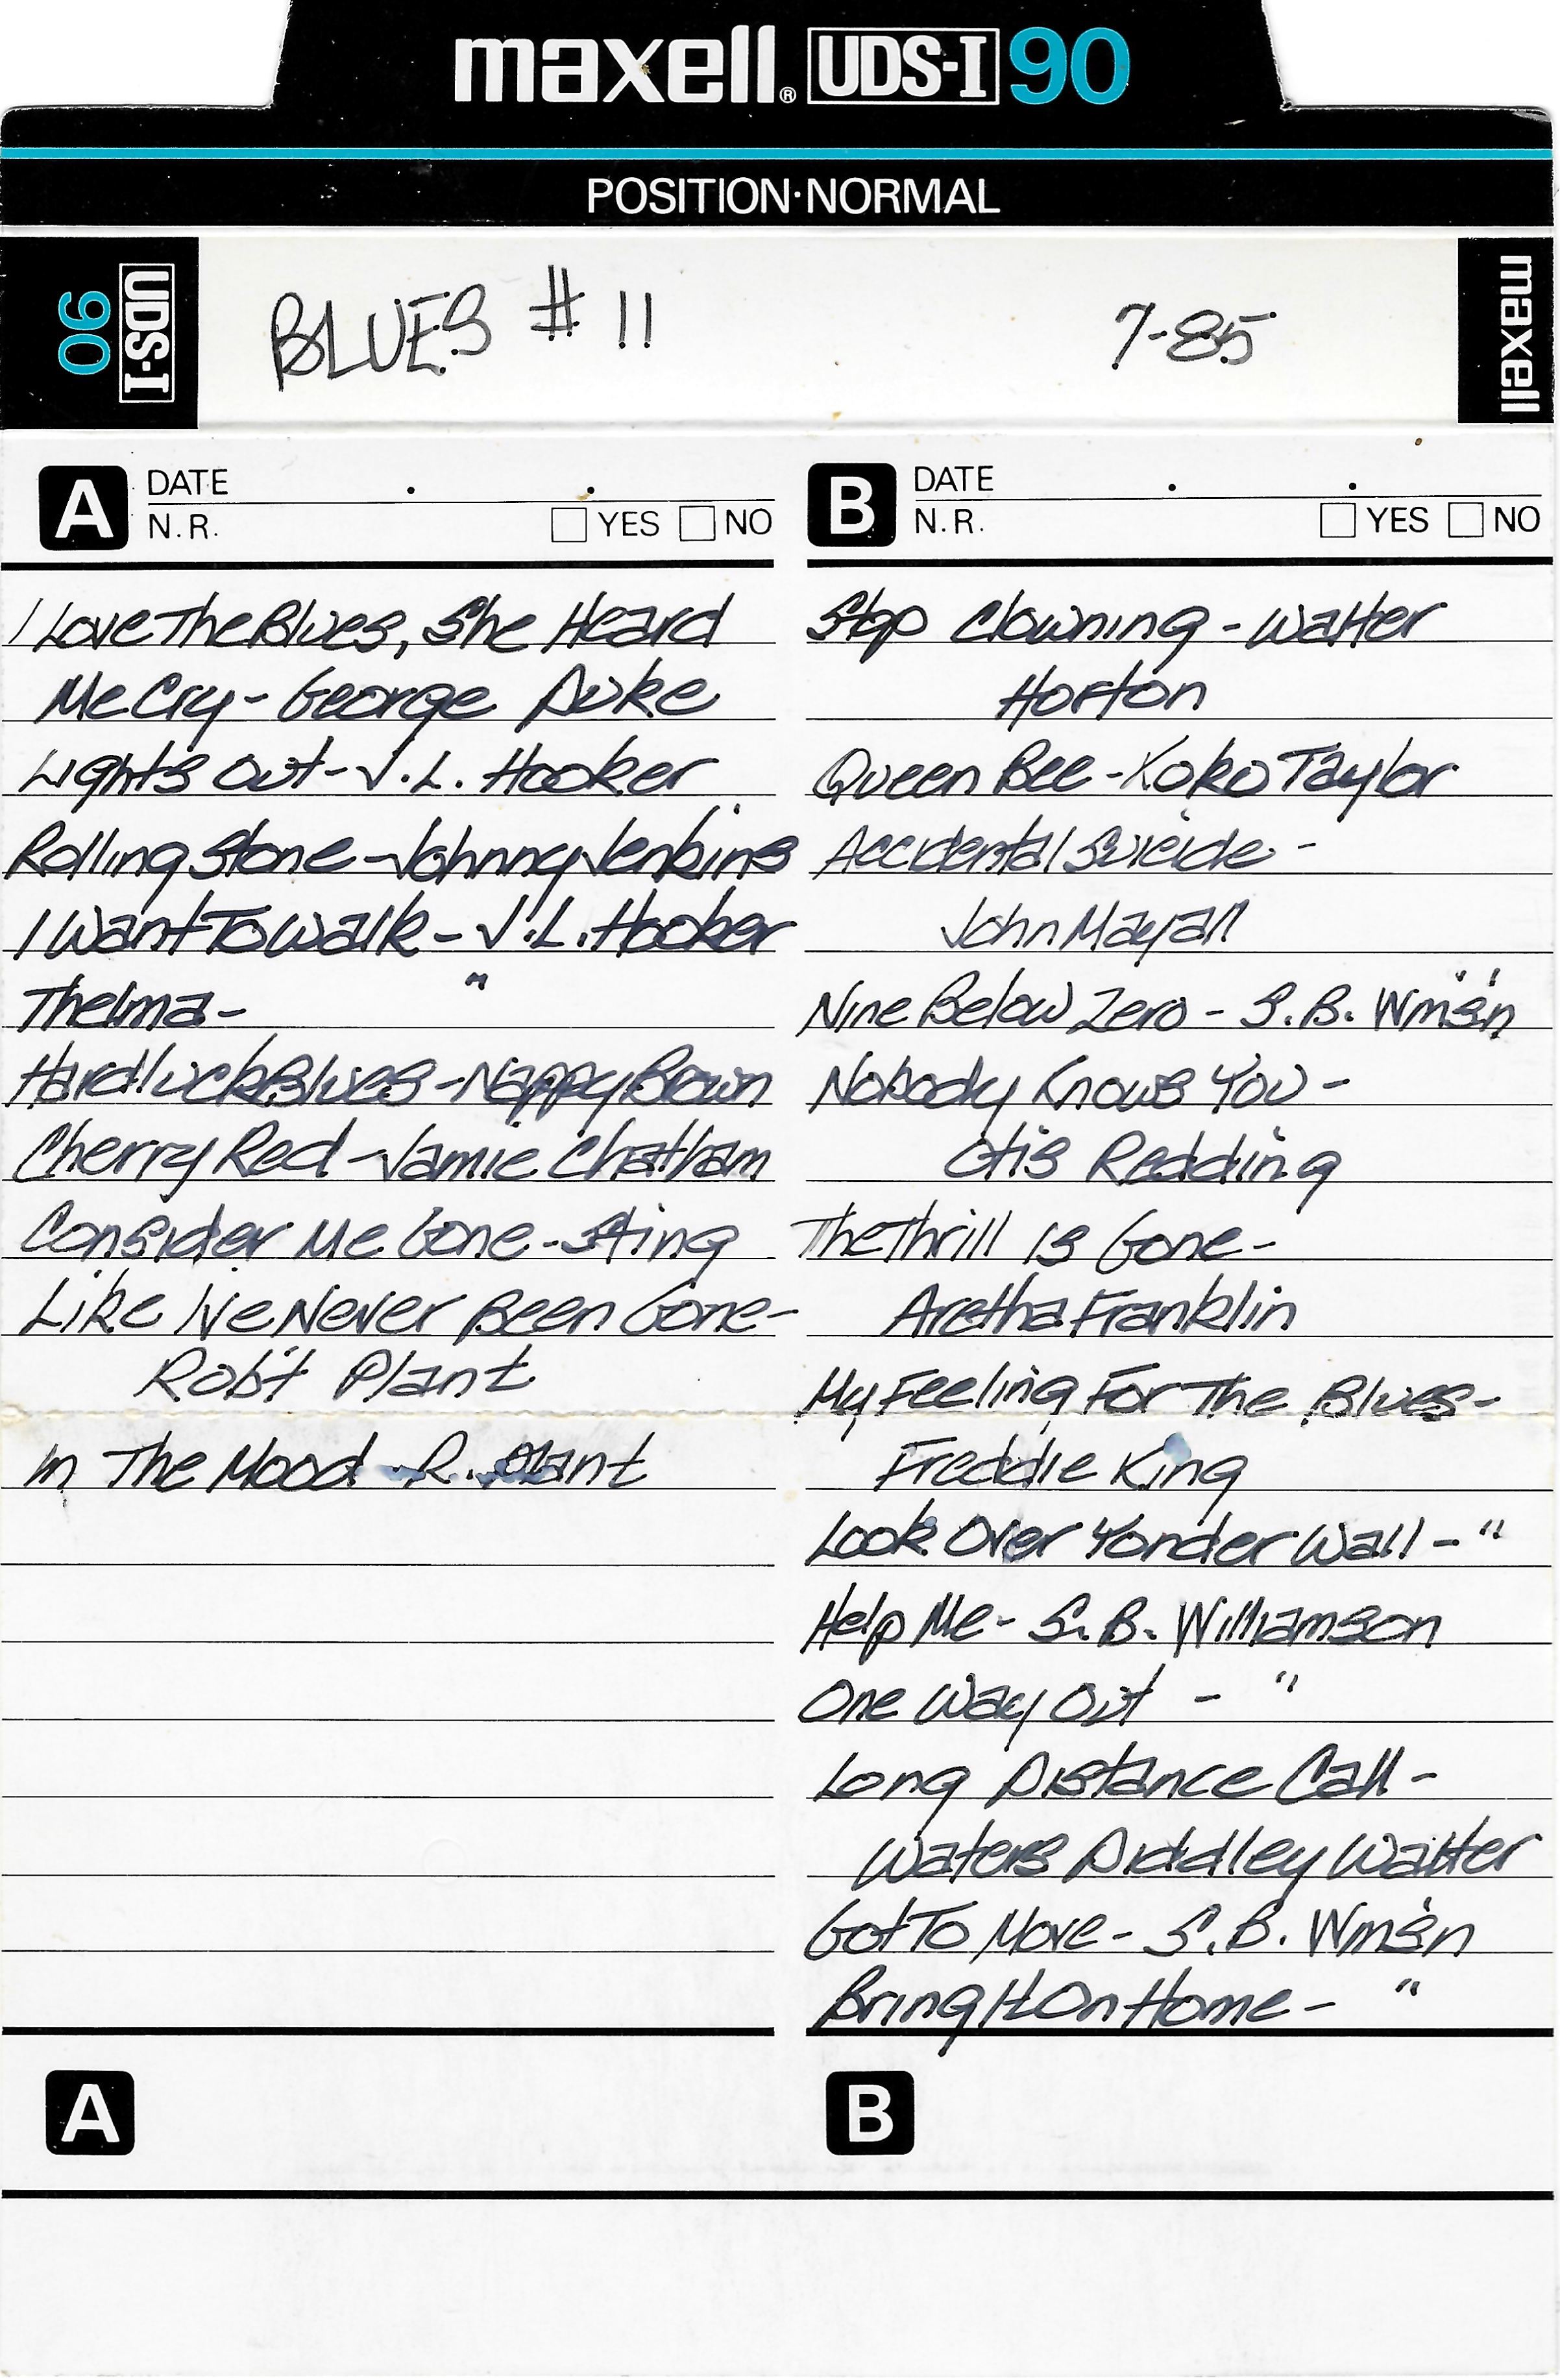 maxell® UDS-I 90
POSITION·NORMAL
UDS-I 90
BLUES #11
7-85
maxell
A DATE . .
N.R. YES NO
I Love The Blues, She Heard
Me Cry - George Duke
Lights Out - J.L. Hooker
Rolling Stone - Johnny Jenkins
I Want To Walk - J.L. Hooker
Thelma - "
Hard luck Blues - Nappy Brown
Cherry Red - Jamie Chatham
Consider Me Gone - Sting
Like I've Never Been Gone -
Rob't Plant
In The Mood - R. Plant
B DATE . .
N.R. YES NO
Stop Clowning - Walter
Horton
Queen Bee - Koko Taylor
Accidental Suicide -
John Mayall
Nine Below Zero - S.B. Wm's'n
Nobody Knows You -
Otis Redding
The Thrill Is Gone -
Aretha Franklin
My Feeling For The Blues -
Freddie King
Look Over Yonder Wall - "
Help Me - S.B. Williamson
One Way Out - "
Long Distance Call -
Waters Diddley Walter
Got To Move - S.B. Wms'n
Bring It On Home - "
A
B